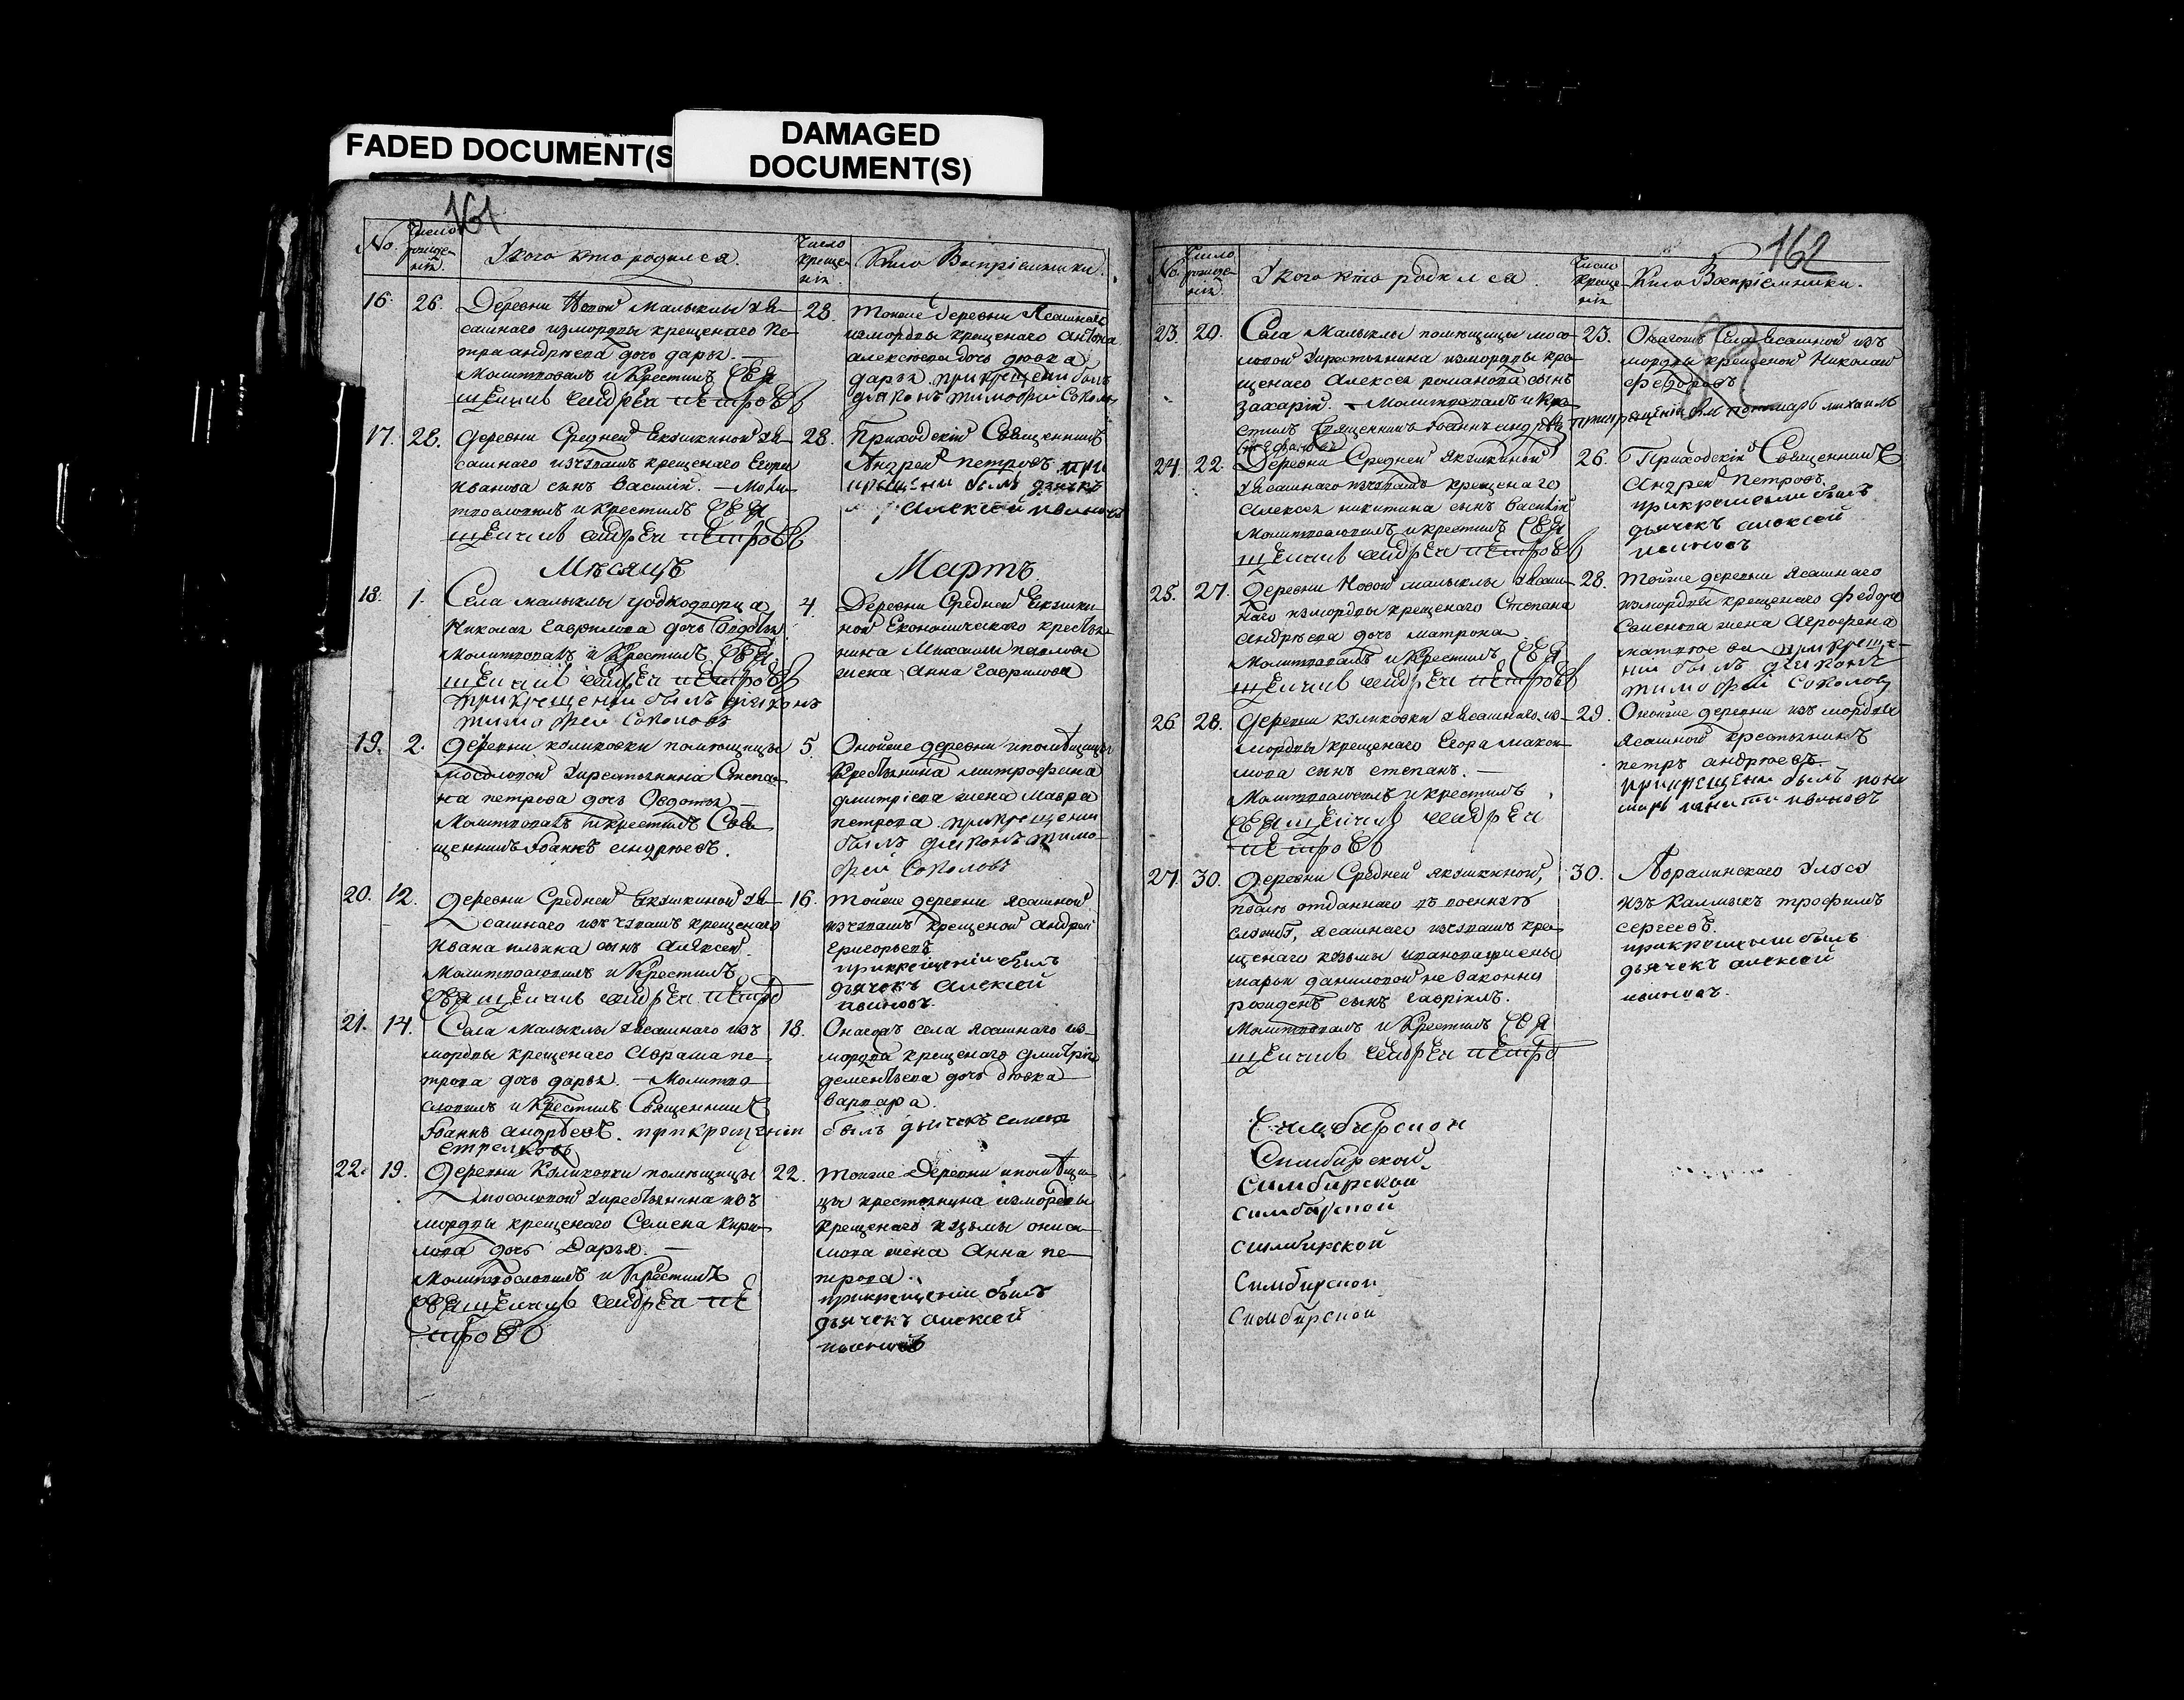 FADED DOCUMENT(S
DAMAGED
DOCUMENT(S)
161
No.
Число рожде-
нія.
У кого кто родился.
Число
креще-
нія
Кто Воспріемники.
16.
26.
Деревни Новой Малыклы Яса-
сашнаго измордвы крещенаго Пе-
тра андрѣева дочь дарья.
Молитвовалъ и Крестилъ Свя
щенникъ андрей петровъ
28.
тойже деревни Ясашнаго
измордвы крещенаго антона
алексѣева дочь девка
дарья при крещеніи былъ
дьяконъ тимофей Соколовъ
17.
28.
деревни Средней Якушкиной Яса-
сашнаго изчувашъ крещенаго Егора
Иванова сынъ Василій. — Моли-
твословилъ и крестилъ Свя
щенникъ андрей петровъ
28.
Приходскій Священникъ
Андрей Петровъ при
крещеніи былъ дьячекъ
алексей ивановъ
Мѣсяцъ
Мартъ
18.
1.
Села малыклы
Николая гаврилова дочь Евдокія
Молитвовалъ и Крестилъ Свя
щенникъ андрей петровъ
при крещеніи былъ дьяконъ
тимофей Соколовъ
4
Деревни Средней Якушки-
ной Економическаго крестья-
нина Михаилы павлова
жена Анна Гаврилова
19.
2.
деревни куликовки помѣщицы
мосоловой крестьянина Степа-
на петрова дочь Овдотья
Молитвовалъ и крестилъ Свя
щенникъ Іоаннъ андреевъ.
5.
Онойже деревни и помѣщицы
Крестьянина митрофана
дмитріева жена Мавра
петрова при крещеніи
былъ дьяконъ тимо-
фей Соколовъ
20.
12.
деревни Средней Якушкиной Яса-
сашнаго изъ чувашъ крещенаго
Ивана ильина сынъ Алексей.
Молитвословилъ и Крестилъ
Священникъ андрей петров
16.
тойже деревни ясашной
изчувашъ крещеной андрей
Григорьевъ
при крещеніи былъ
дьячекъ алексей
ивановъ.
21.
14.
Села Малыклы Ясашнаго изъ
мордвы крещенаго Абрама пе-
трова дочь дарья. — Молитво
словилъ и Крестилъ Священникъ
Іоаннъ андреевъ. при крещеніи
стрелковъ
18.
Онагожъ села ясашнаго из-
мордвы крещенаго дмитрія
дементьева дочь девка
варвара.
былъ дьячекъ семенъ
22.
19.
деревни Куликовки помѣщицы
мосоловой крестьянина изъ
мордвы крещенаго Семена Кири-
лова дочь Дарья. —
Молитвословилъ и Крестилъ
Священникъ андрей пе
тровъ
22.
тойже Деревни и помѣщи-
цы крестьянина измордвы
крещенаго кузьмы ониси-
мова жена Анна пе-
трова.
при крещеніи былъ
дьячекъ алексей
ивановъ
162
No.
Число
рожде-
нія.
У кого кто родился.
Число
креще-
нія
Кто Воспріемники.
23.
20.
Села Малыклы помѣщицы мосо-
ловой крестьянина измордвы кре-
щенаго Алексея романова сынъ
Захарій. — Молитвовалъ и Кре-
стилъ Священникъ Іоаннъ андреевъ
23.
Онагожъ Села Ясашной изъ
мордвы крещеной Николай
Федоровъ
при крещеніи былъ пономарь михаилъ
24.
22.
Деревни Средней Якушкиной
Ясашнаго изчувашъ крещенаго
алексея никитина сынъ василій
Молитвословилъ и крестилъ Свя
щенникъ андрей петровъ
26.
Приходскій Священникъ
Андрей Петровъ.
при крещеніи былъ
дьячекъ алексей
ивановъ
25.
27.
деревни Новой малыклы Ясаш-
наго измордвы крещенаго Степана
андрѣева дочь матрона
Молитвовалъ и Крестилъ Свя
щенникъ андрей петровъ
28.
тойже деревни Ясашнаго
измордвы крещенаго Федора
Семенова жена Агрофена
матвѣева при креще-
ніи былъ дьяконъ
тимофей соколовъ
26.
28.
деревни куликовки Ясашнаго из-
мордвы крещенаго Егора маком-
мова сынъ степанъ. —
Молитвословилъ и крестилъ
Священникъ андрей
петровъ
29.
Онойже деревни изъ мордвы
ясашной крестьянинъ
петръ андреевъ.
при крещеніи былъ поно
марь игнатій ивановъ
27.
30.
деревни Средней якушкиной,
послѣ отданнаго въ военную
службу, ясашнаго изчувашъ кре-
щенаго кузьмы
марьи даниловой не законно
рожденъ сынъ гавріилъ.
Молитвовалъ и Крестилъ Свя
щенникъ андрей петров
30.
улуса
изъ Калмыкъ трофимъ
сергеевъ.
при крещеніи былъ
дьячекъ алексей
ивановъ.
Симбирской
Симбирской
Симбирской
симбирской
симбирской
Симбирской
Симбирской